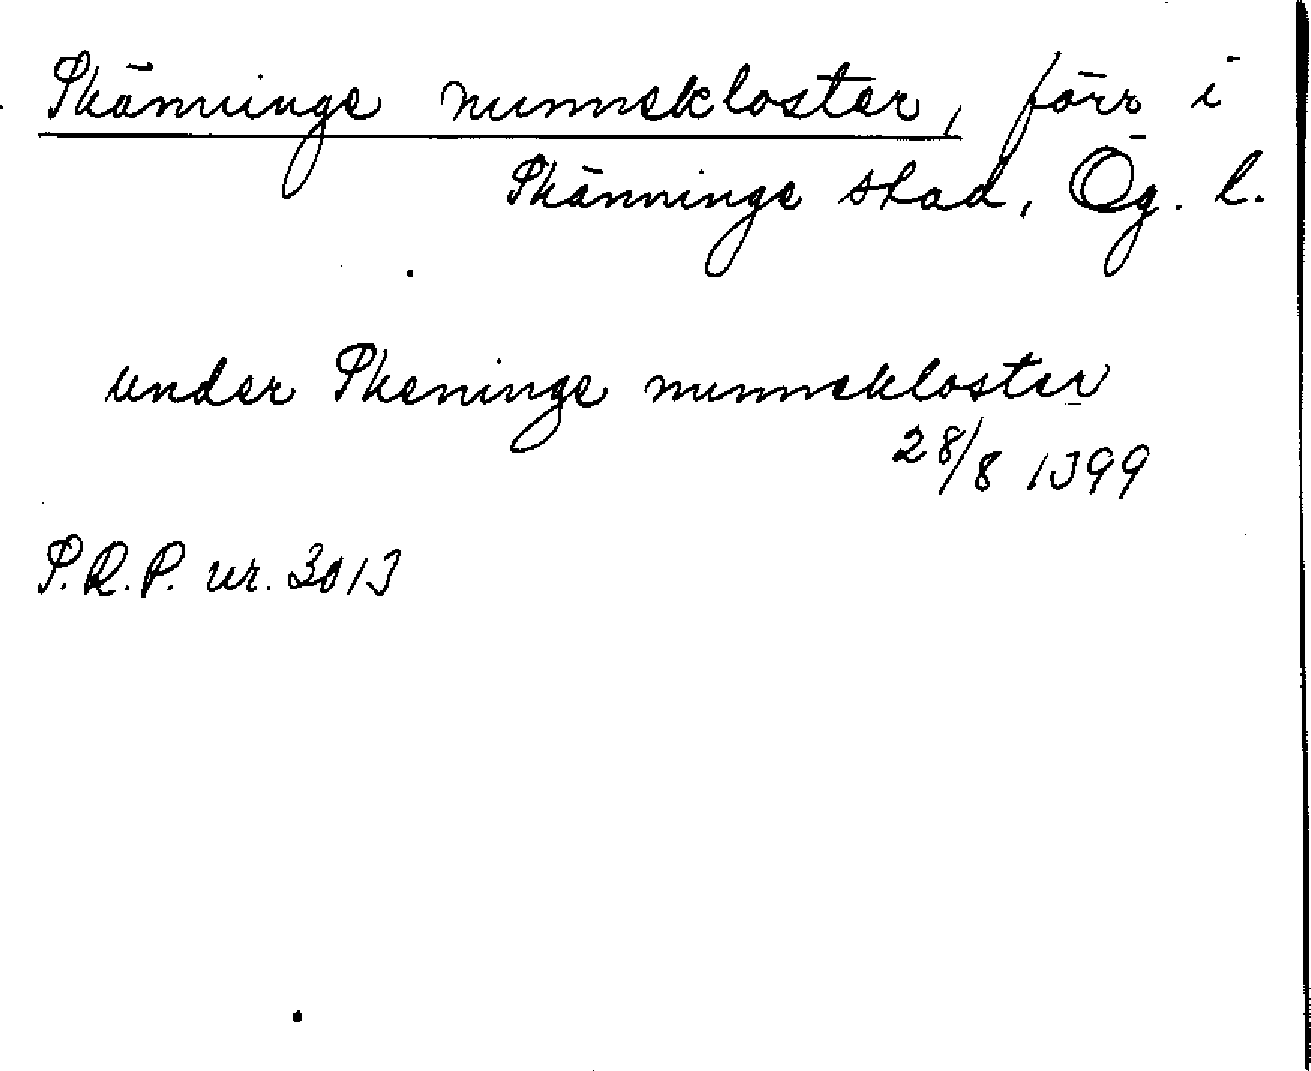 Skänninge nunnekloster, förr i
Skänninge stad, Ög. l.
under Skeninge nunnekloster
28/8 1399
S.R.P. nr. 3013